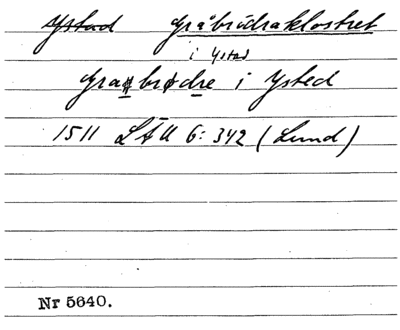 Ystad Gråbrödraklostret
i Ystad
Graabrødre i Ysted
1511 LÄU 6: 342 (Lund)
Nr 5640.